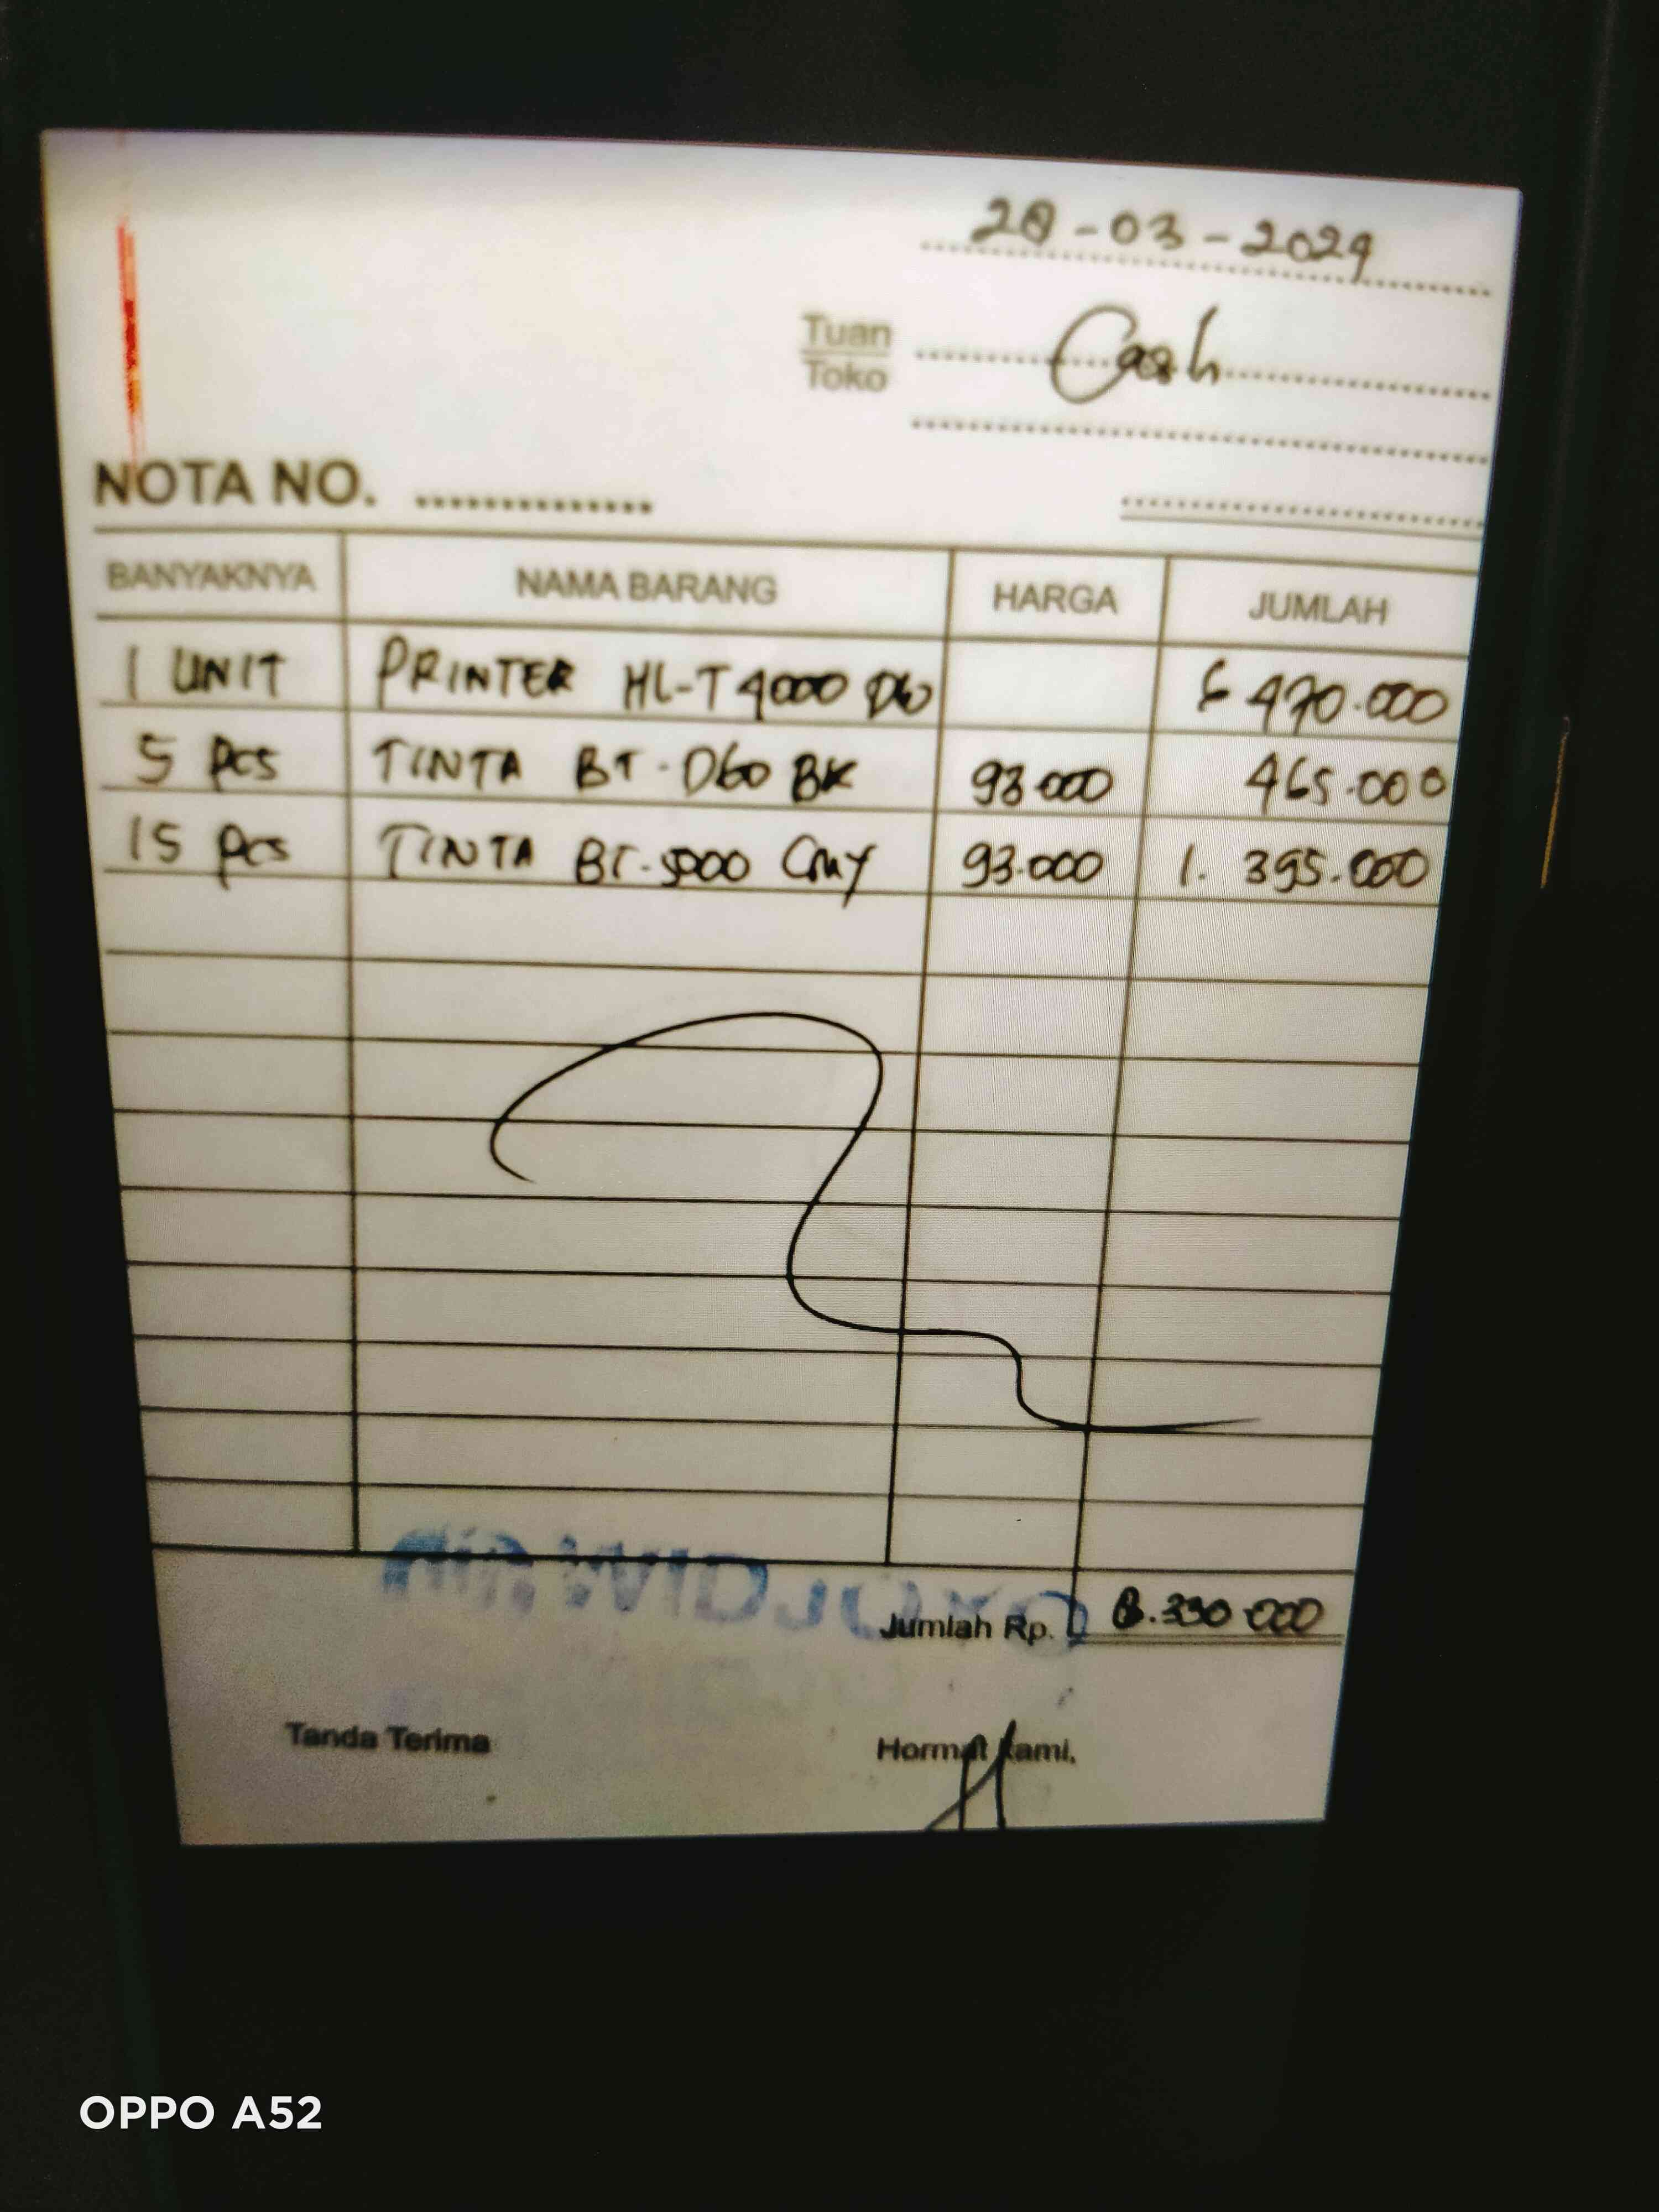 28-03-2024
Tuan
Toko
Cash
NOTA NO.
BANYAKNYA NAMA BARANG HARGA JUMLAH
1 UNIT PRINTER HL-T4000 DW 6 470.000
5 Pcs TINTA BT-D60 BK 93.000 465.000
15 Pcs TINTA BT-5000 CMY 93.000 1.395.000
Jumlah Rp. 8.330.000
Tanda Terima Hormat Kami,
OPPO A52